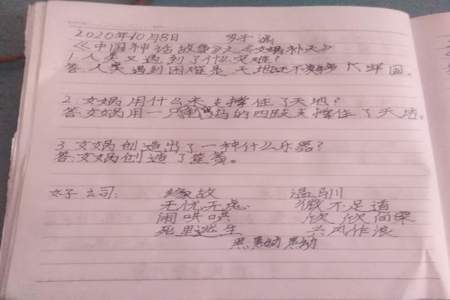 2020年10月8日
《中国神话故事》之《女娲补天》
1.人类又遇到了什么灾难?
答:人类遇到困难来,天地
2.女娲用什么来支撑住了天地?
答:女娲用一只的四肢支撑住了天地。
3.女娲创造出了一种什么乐器?
答:女娲创造了笙簧。
好词: 缘故 温驯
无忧无虑 微不足道
闹哄哄 欣欣向荣
死里逃生 兴风作浪